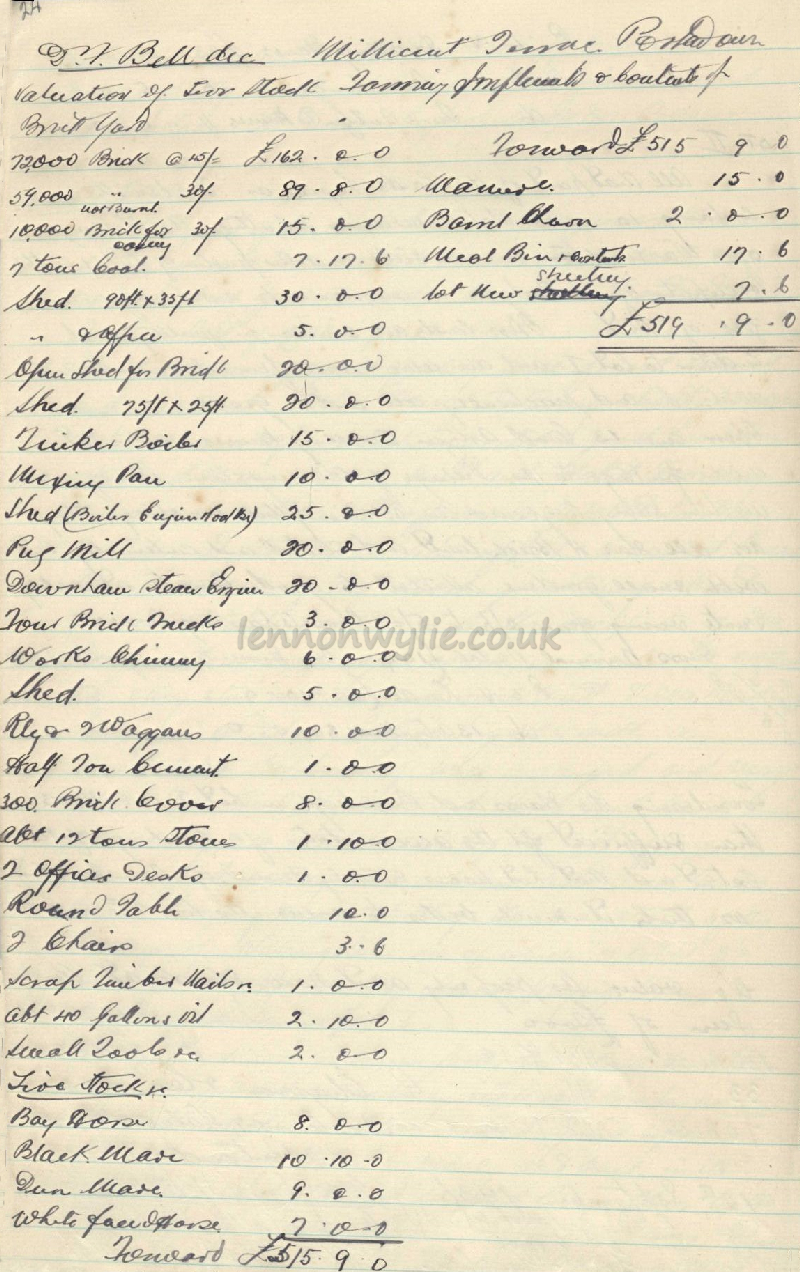 24
D. T. Bell dec Millicent Terrace Portadown
Valuation of Live Stock Farming Implements & Contents of
Brick Yard
72,000 Brick @ 45/= £162 . 0 . 0
59,000 " not Burnt 30/ 89 . 8 . 0
10,000 Brick for 30/ 15 . 0 . 0
7 tons Coal. 7 . 17 . 6
Shed. 90ft x 35ft 30 . 0 . 0
" & Office 5 . 0 . 0
Open Shed for Brick 20 . 0 . 0
Shed. 75ft x 25ft 20 . 0 . 0
Boiler 15 . 0 . 0
Mixing Pan 10 . 0 . 0
Shed (Boiler Engine 25 . 0 . 0
Pug Mill 20 . 0 . 0
Downham steam Engine 20 . 0 . 0
Four Brick Trucks 3 . 0 . 0
Works Chimney 6 . 0 . 0
Shed. 5 . 0 . 0
Rly & 2 Waggans 10 . 0 . 0
Half Ton Cement 1 . 0 . 0
300 Brick Covers 8 . 0 . 0
abt 12 tons Stones 1 . 10 . 0
2 Offices Desks 1 . 0 . 0
Round Table 10 . 0
2 Chairs 3 . 6
Scrap Timber Nails &c. 1 . 0 . 0
abt 40 Gallons oil 2 . 10 . 0
Small Tools &c 2 . 0 . 0
Live Stock &c.
Bay Horse 8 . 0 . 0
Black Mare 10 . 10 . 0
Dun Mare 9 . 0 . 0
White faced Horse 7 . 0 . 0
Forward £515 . 9 . 0
Forward £515 9 0
Manure. 15 . 0
Barrel Churn 2 . 0 . 0
Meal Bin & contents 17 . 6
lot New sheeting 7 . 6
£519 . 9 . 0
lennonwylie.co.uk